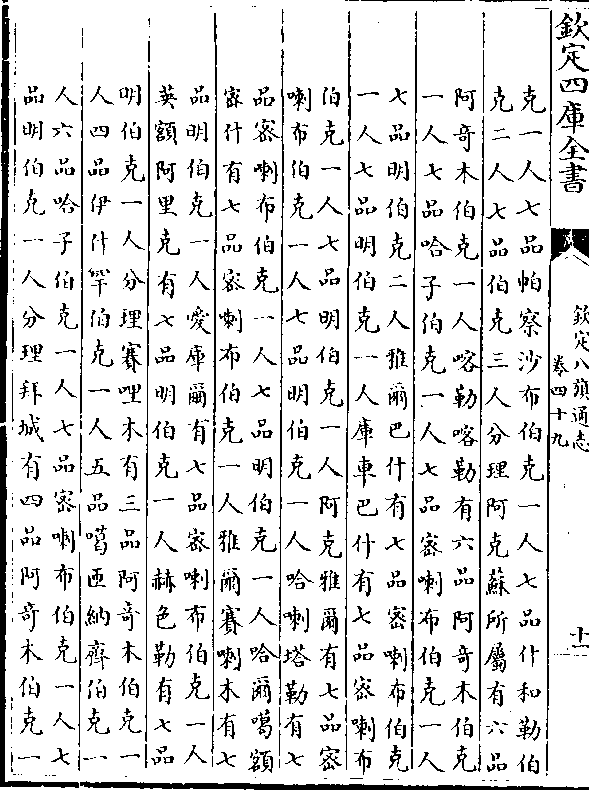 欽定四庫全書
欽定八旗通志
卷四十九
十一
克一人七品帕察沙布伯克一人七品什和勒伯
克二人七品伯克三人分理阿克蘇所屬有六品
阿奇木伯克一人喀勒喀勒有六品阿奇木伯克
一人七品哈子伯克一人七品密喇布伯克一人
七品明伯克二人雅爾巴什有七品密喇布伯克
一人七品明伯克一人庫車巴什有七品密喇布
伯克一人七品明伯克一人阿克雅爾有七品密
喇布伯克一人七品明伯克一人哈喇塔勒有七
品密喇布伯克一人七品明伯克一人哈爾噶額
密什有七品密喇布伯克一人雅爾賽喇木有七
品明伯克一人愛庫爾有七品密喇布伯克一人
英額阿里克有七品明伯克一人赫色勒有七品
明伯克一人分理賽哩木有三品阿奇木伯克一
人四品伊什罕伯克一人五品噶匝納齊伯克一
人六品哈子伯克一人七品密喇布伯克一人七
品明伯克一人分理拜城有四品阿奇木伯克一